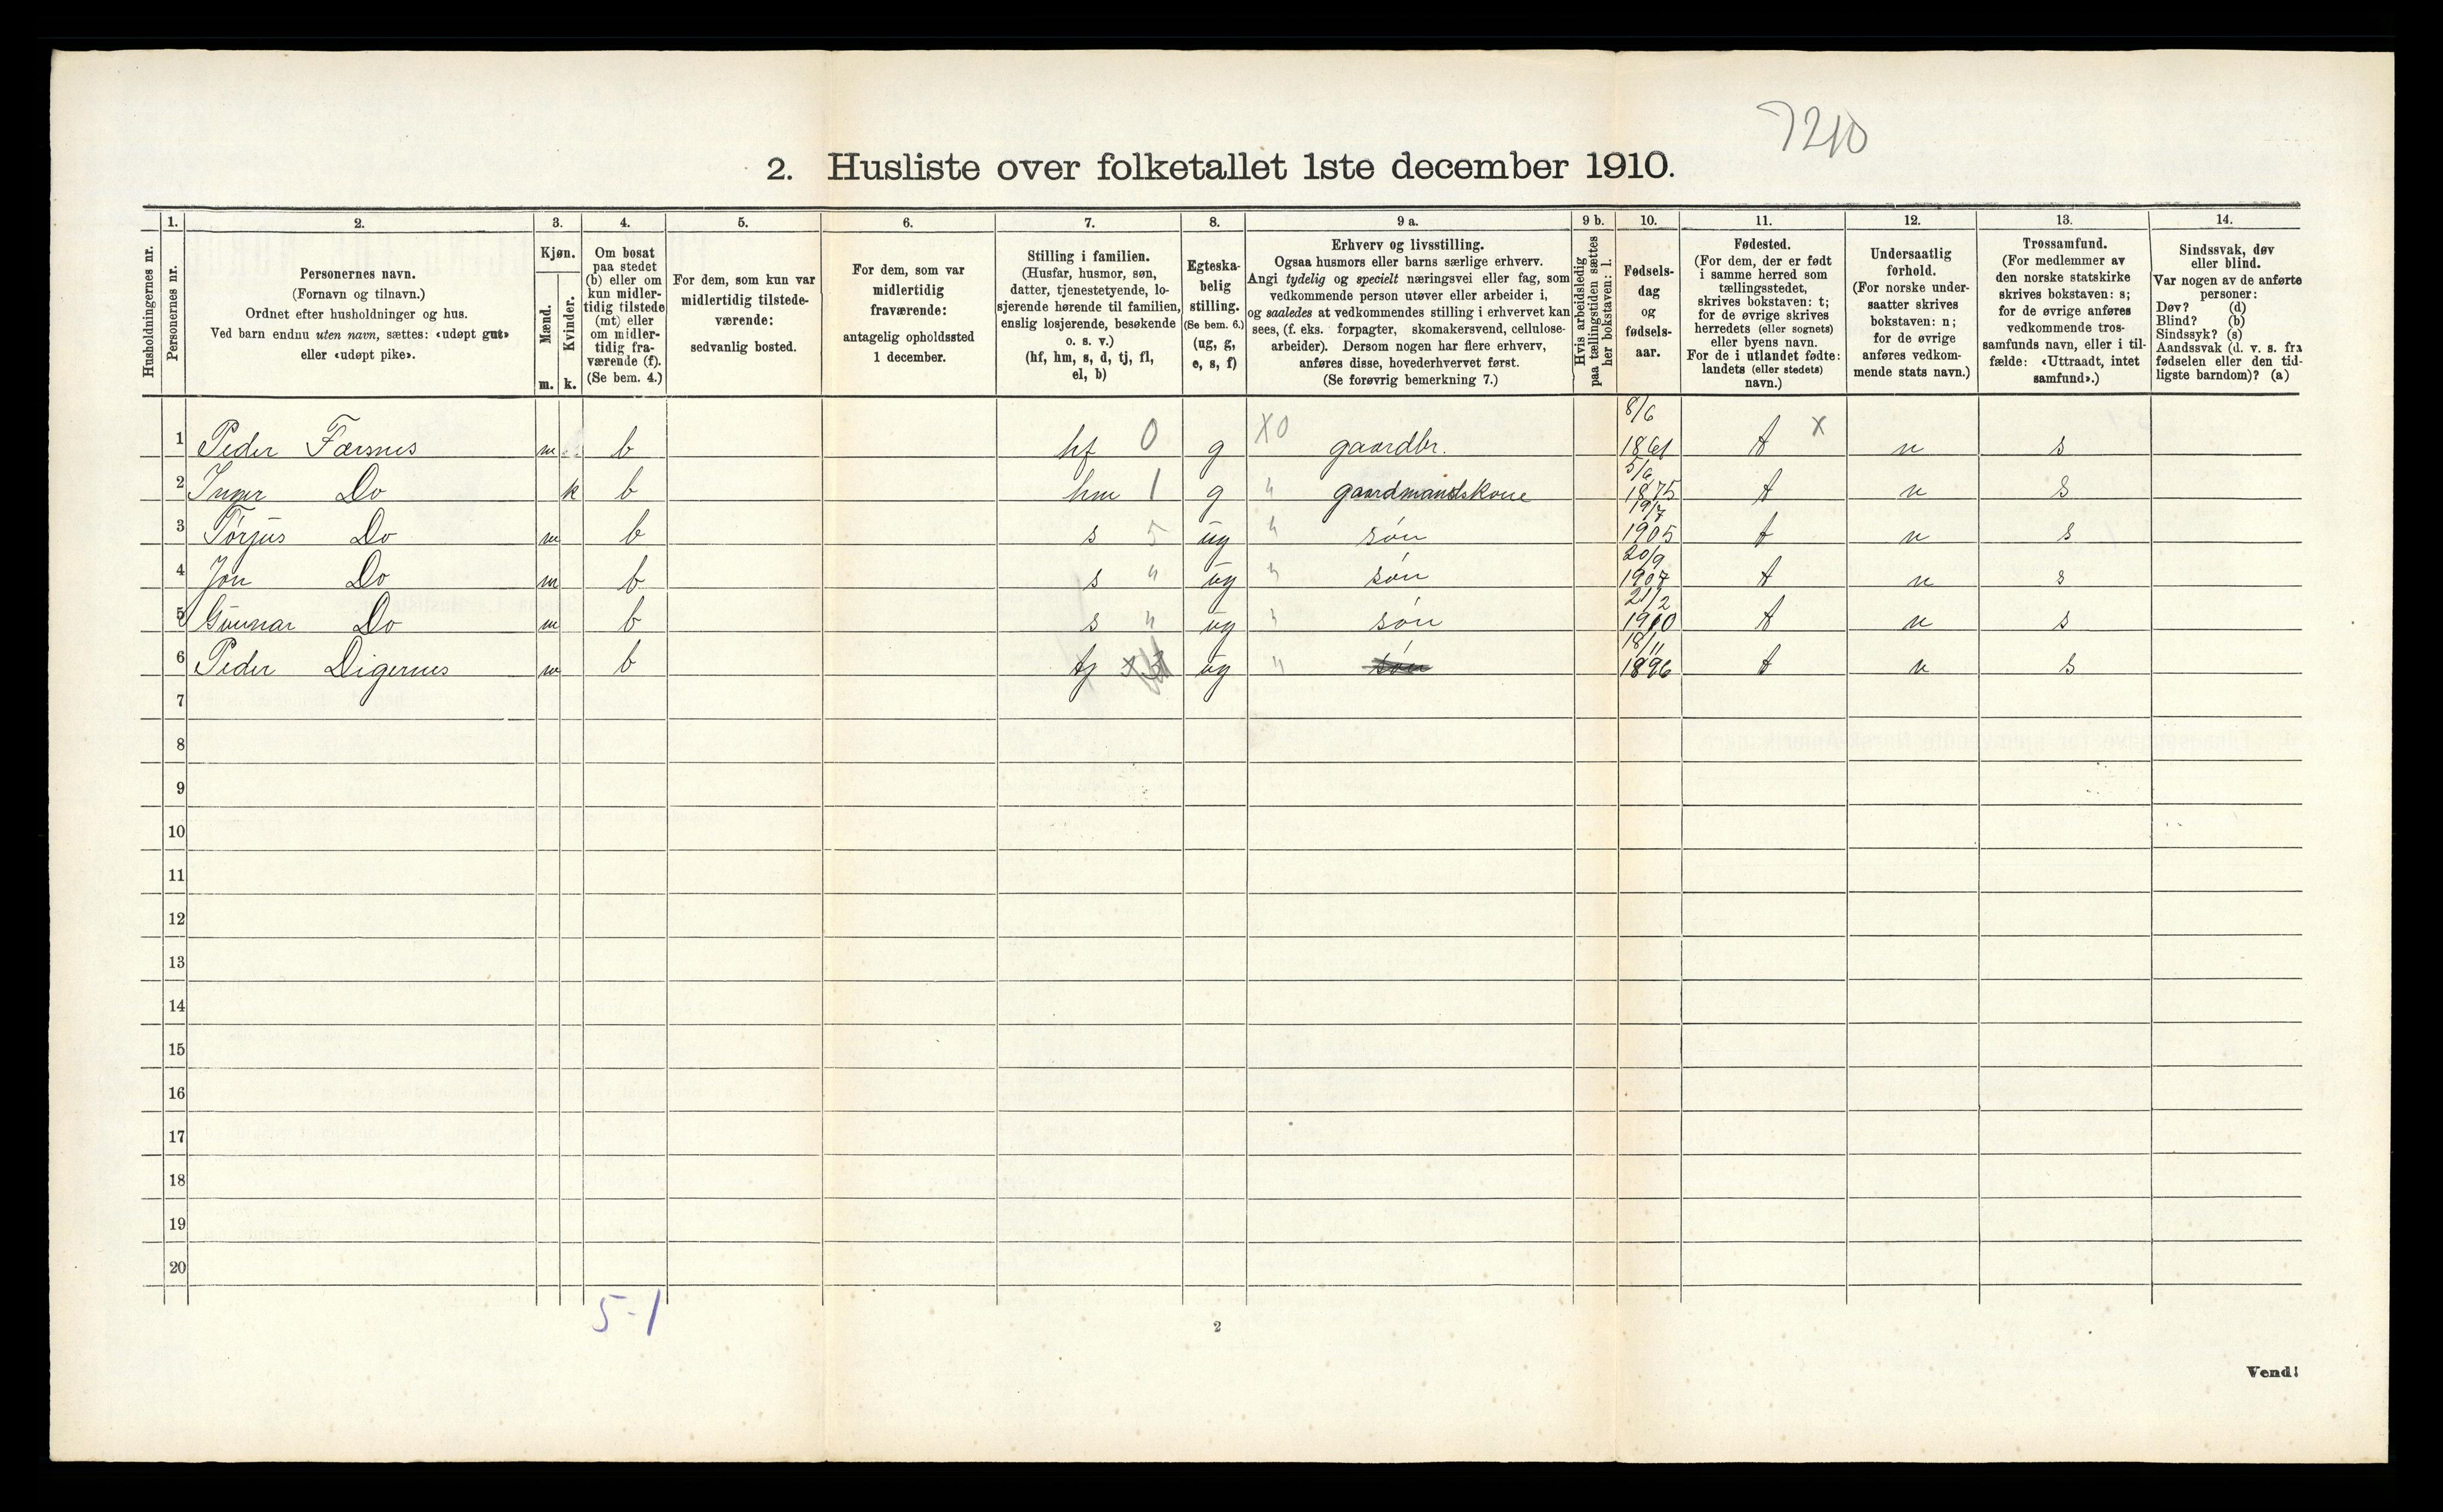 7210
2. Husliste over folketallet 1ste december 1910.
Husholdningernes nr.
1.
Personernes nr.
2.
Personernes navn.
(Fornavn og tilnavn.)
Ordnet efter husholdninger og hus.
Ved barn endnu uten navn, sættes: «udøpt gut»
eller «udøpt pike».
3.
Kjøn.
Mænd.
m.
Kvinder.
k.
4.
Om bosat
paa stedet
(b) eller om
kun midler-
tidig tilstede
(mt) eller
om midler-
tidig fra-
værende (f).
(Se bem. 4.)
5.
For dem, som kun var
midlertidig tilstede-
værende:
sedvanlig bosted.
6.
For dem, som var
midlertidig
fraværende:
antagelig opholdssted
1 december.
7.
Stilling i familien.
(Husfar, husmor, søn,
datter, tjenestetyende, lo-
sjerende hørende til familien,
enslig losjerende, besøkende
o. s. v.)
(hf, hm, s, d, tj, fl,
el, b)
8.
Egteska-
belig
stilling.
(Se bem. 6.)
(ug, g,
e, s, f)
9 a.
Erhverv og livsstilling.
Ogsaa husmors eller barns særlige erhverv.
Angi tydelig og specielt næringsvei eller fag, som
vedkommende person utøver eller arbeider i,
og saaledes at vedkommendes stilling i erhvervet kan
sees, (f. eks. forpagter, skomakersvend, cellulose-
arbeider). Dersom nogen har flere erhverv,
anføres disse, hovederhvervet først.
(Se forøvrig bemerkning 7.)
9 b.
Hvis arbeidsledig
paa tællingstiden sættes
her bokstaven: l.
10.
Fødsels-
dag
og
fødsels-
aar.
11.
Fødested.
(For dem, der er født
i samme herred som
tællingsstedet,
skrives bokstaven: t;
for de øvrige skrives
herredets (eller sognets)
eller byens navn.
For de i utlandet fødte:
landets (eller stedets)
navn.)
12.
Undersaatlig
forhold.
(For norske under-
saatter skrives
bokstaven: n;
for de øvrige
anføres vedkom-
mende stats navn.)
13.
Trossamfund.
(For medlemmer av
den norske statskirke
skrives bokstaven: s;
for de øvrige anføres
vedkommende tros-
samfunds navn, eller i til-
fælde: «Uttraadt, intet
samfund».)
14.
Sindssvak, døv
eller blind.
Var nogen av de anførte
personer:
Døv? (d)
Blind? (b)
Sindssyk? (s)
Aandssvak (d. v. s. fra
fødselen eller den tid-
ligste barndom)? (a)
1 Peder Færsnes m b hf 0 g X0 gaardbr. 8/6 1861 t X n s
2 Inger Do k b hm 1 g " gaardmandskone 5/6 1875 t n s
3 Torjus Do m b s 5 ug " søn 19/7 1905 t n s
4 Jon Do m b s " ug " søn 20/9 1907 t n s
5 Gunnar Do m b s " ug " søn 21/2 1910 t n s
6 Peder Digernes m b tj ug " søn 18/11 1896 t n s
7
8
9
10
11
12
13
14
15
16
17
18
19
20
5-1
2
Vend!